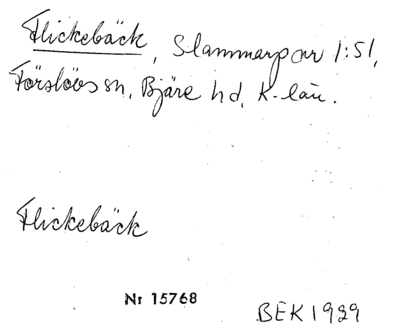 Flickebäck, Slammarpar 1:51,
Förslövs sn, Bjäre hd, K-län.
Flickebäck
Nr 15768
BEK 1929